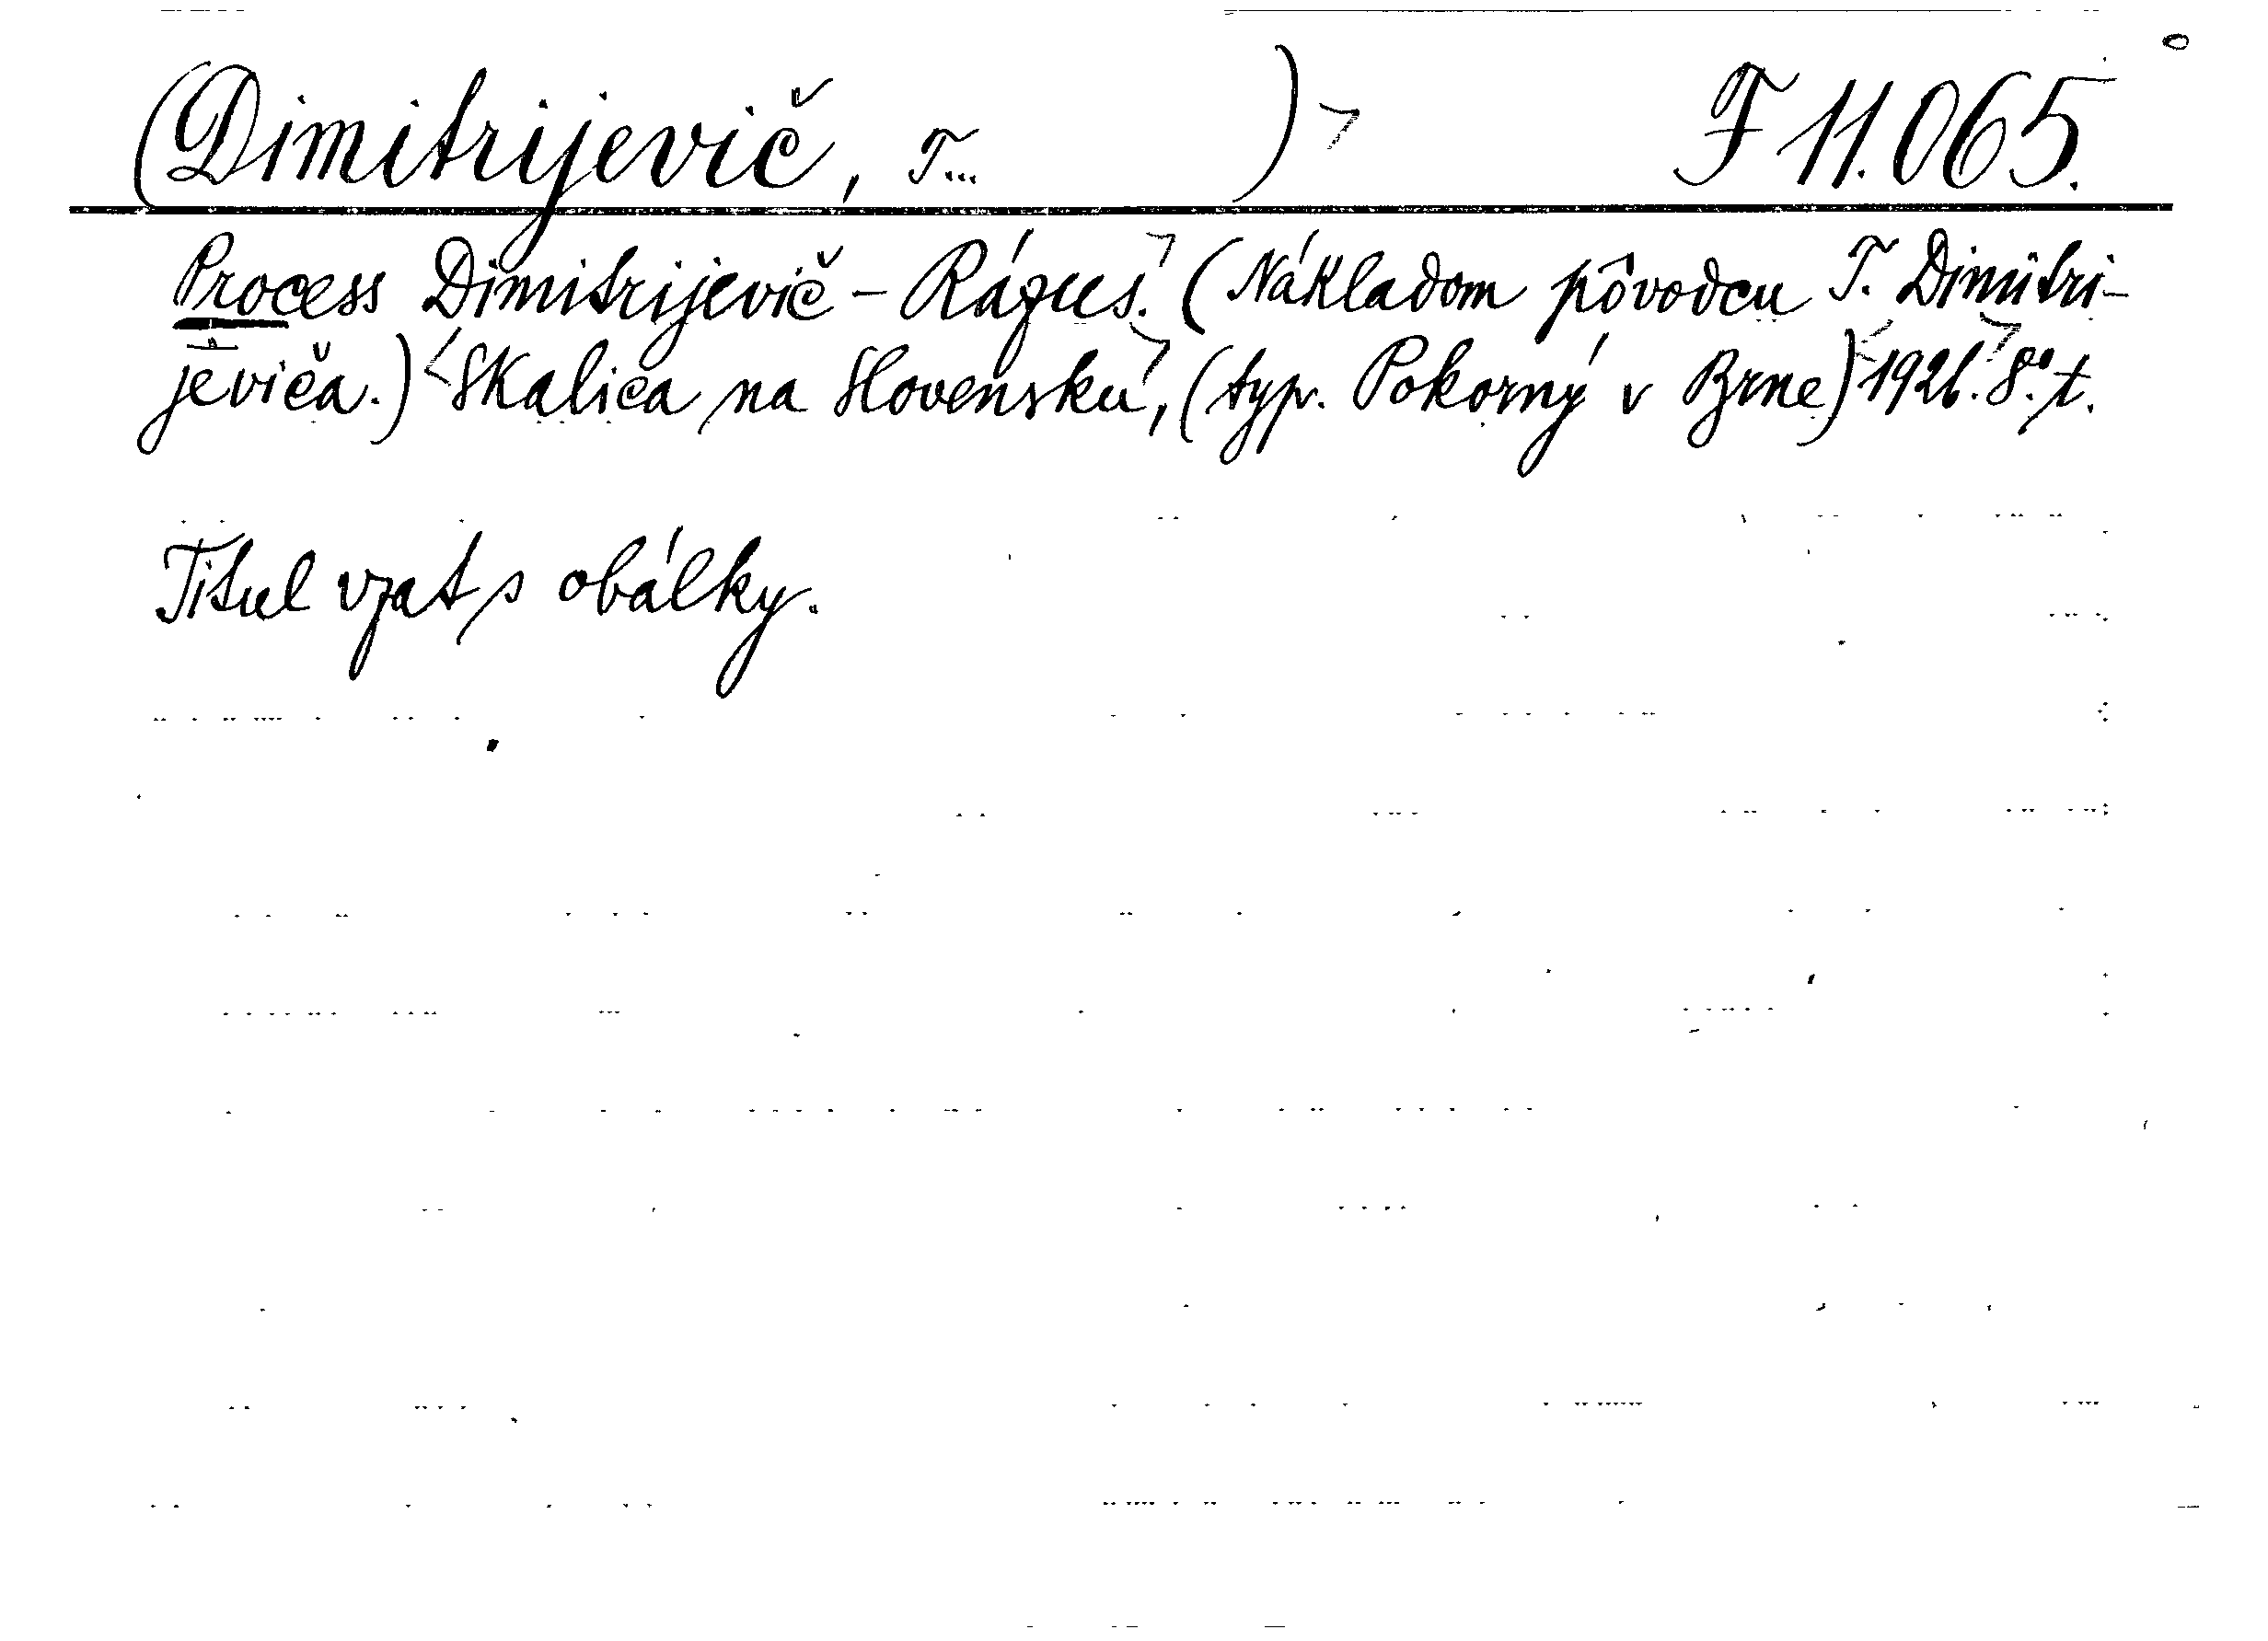 (Dimitrijevič, T... ) F 11.065.
Process Dimitrijevič - Rázus. (Nákladom pôvodcu T. Dimitri-
jeviča.) Skalica na Slovensku, (typ. Pokorný v Brne) 1921. 8°. t.
Titul vzat s obálky.